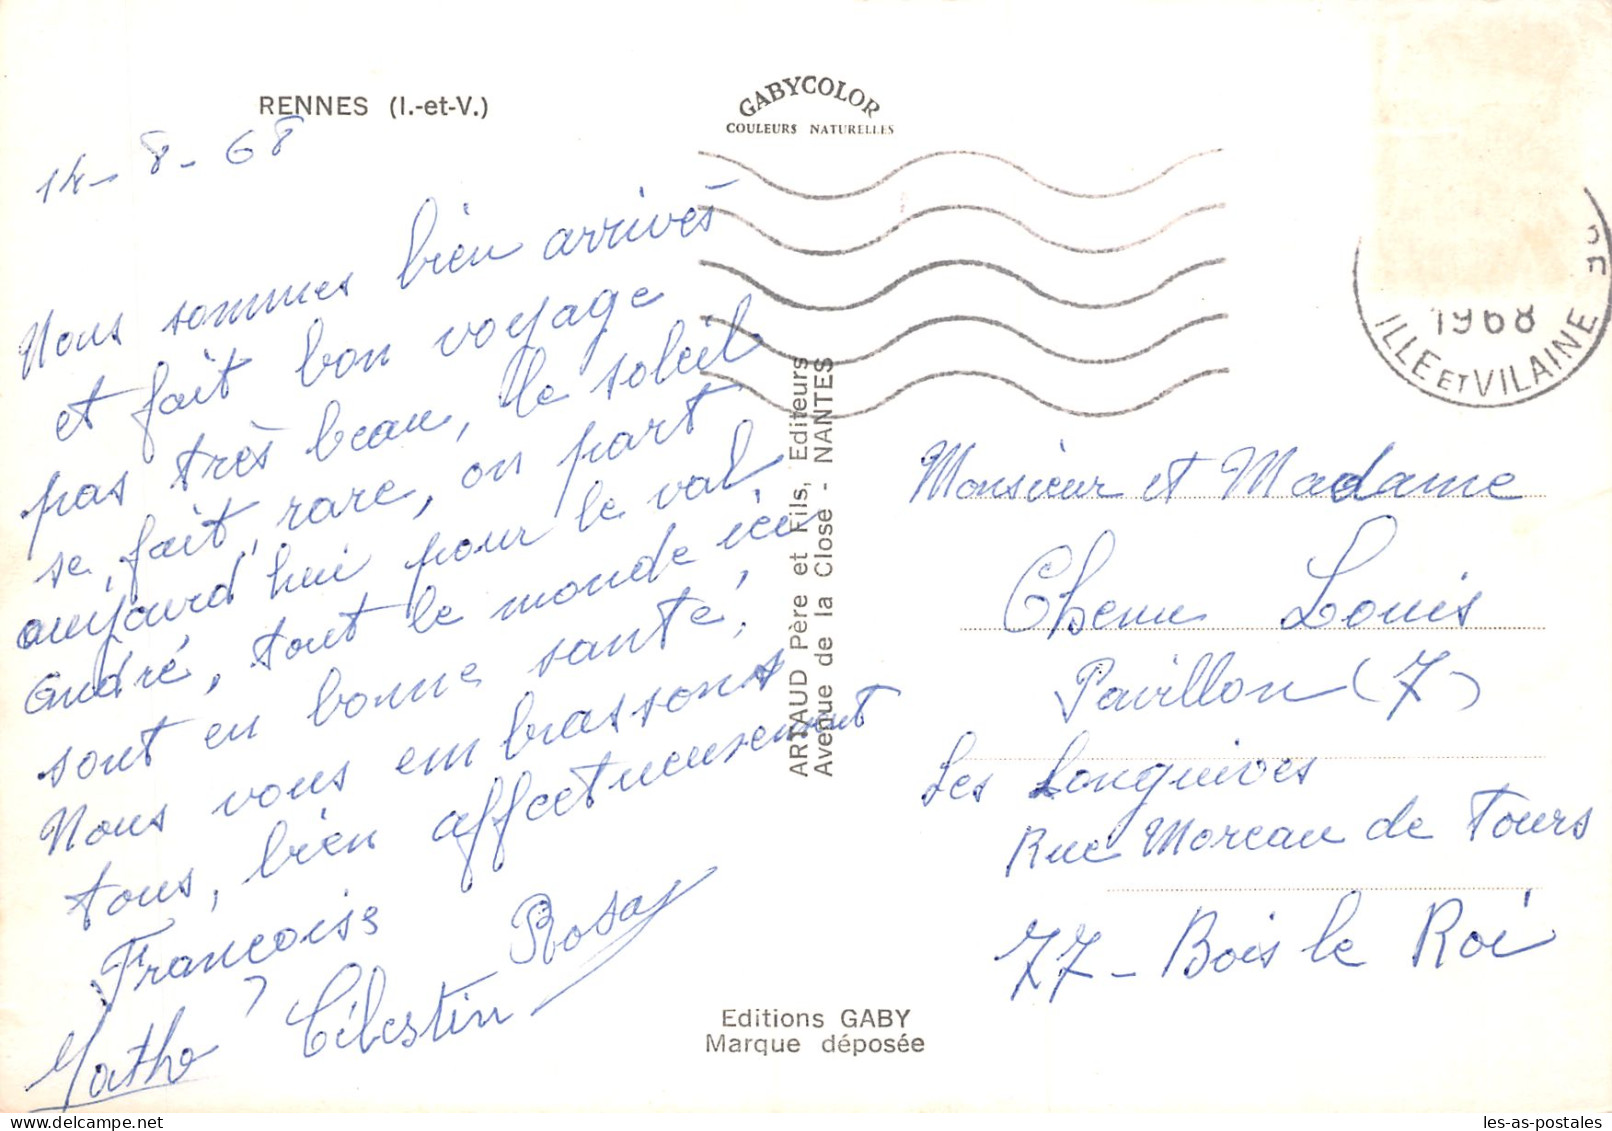 RENNES (I.-et-V.)
14-8-68
Nous sommes bien arrivés
et fait bon voyage
pas très beau, le soleil
se fait rare, on part
aujourd'hui pour le val
André, tout le monde ici
sont en bonne santé,
Nous vous embrassons
tous, bien affectueusement
Françoise Rosa
Célestin
GABYCOLOR
COULEURS NATURELLES
1968
ILLE ET VILAINE
ARTAUD Père et Fils, Editeurs
Avenue de la Close - NANTES
Monsieur et Madame
Chenu Louis
Pavillon (7)
Les Longuives
Rue Moreau de Tours
77 - Bois le Roi
Editions GABY
Marque déposée
les-as-postales